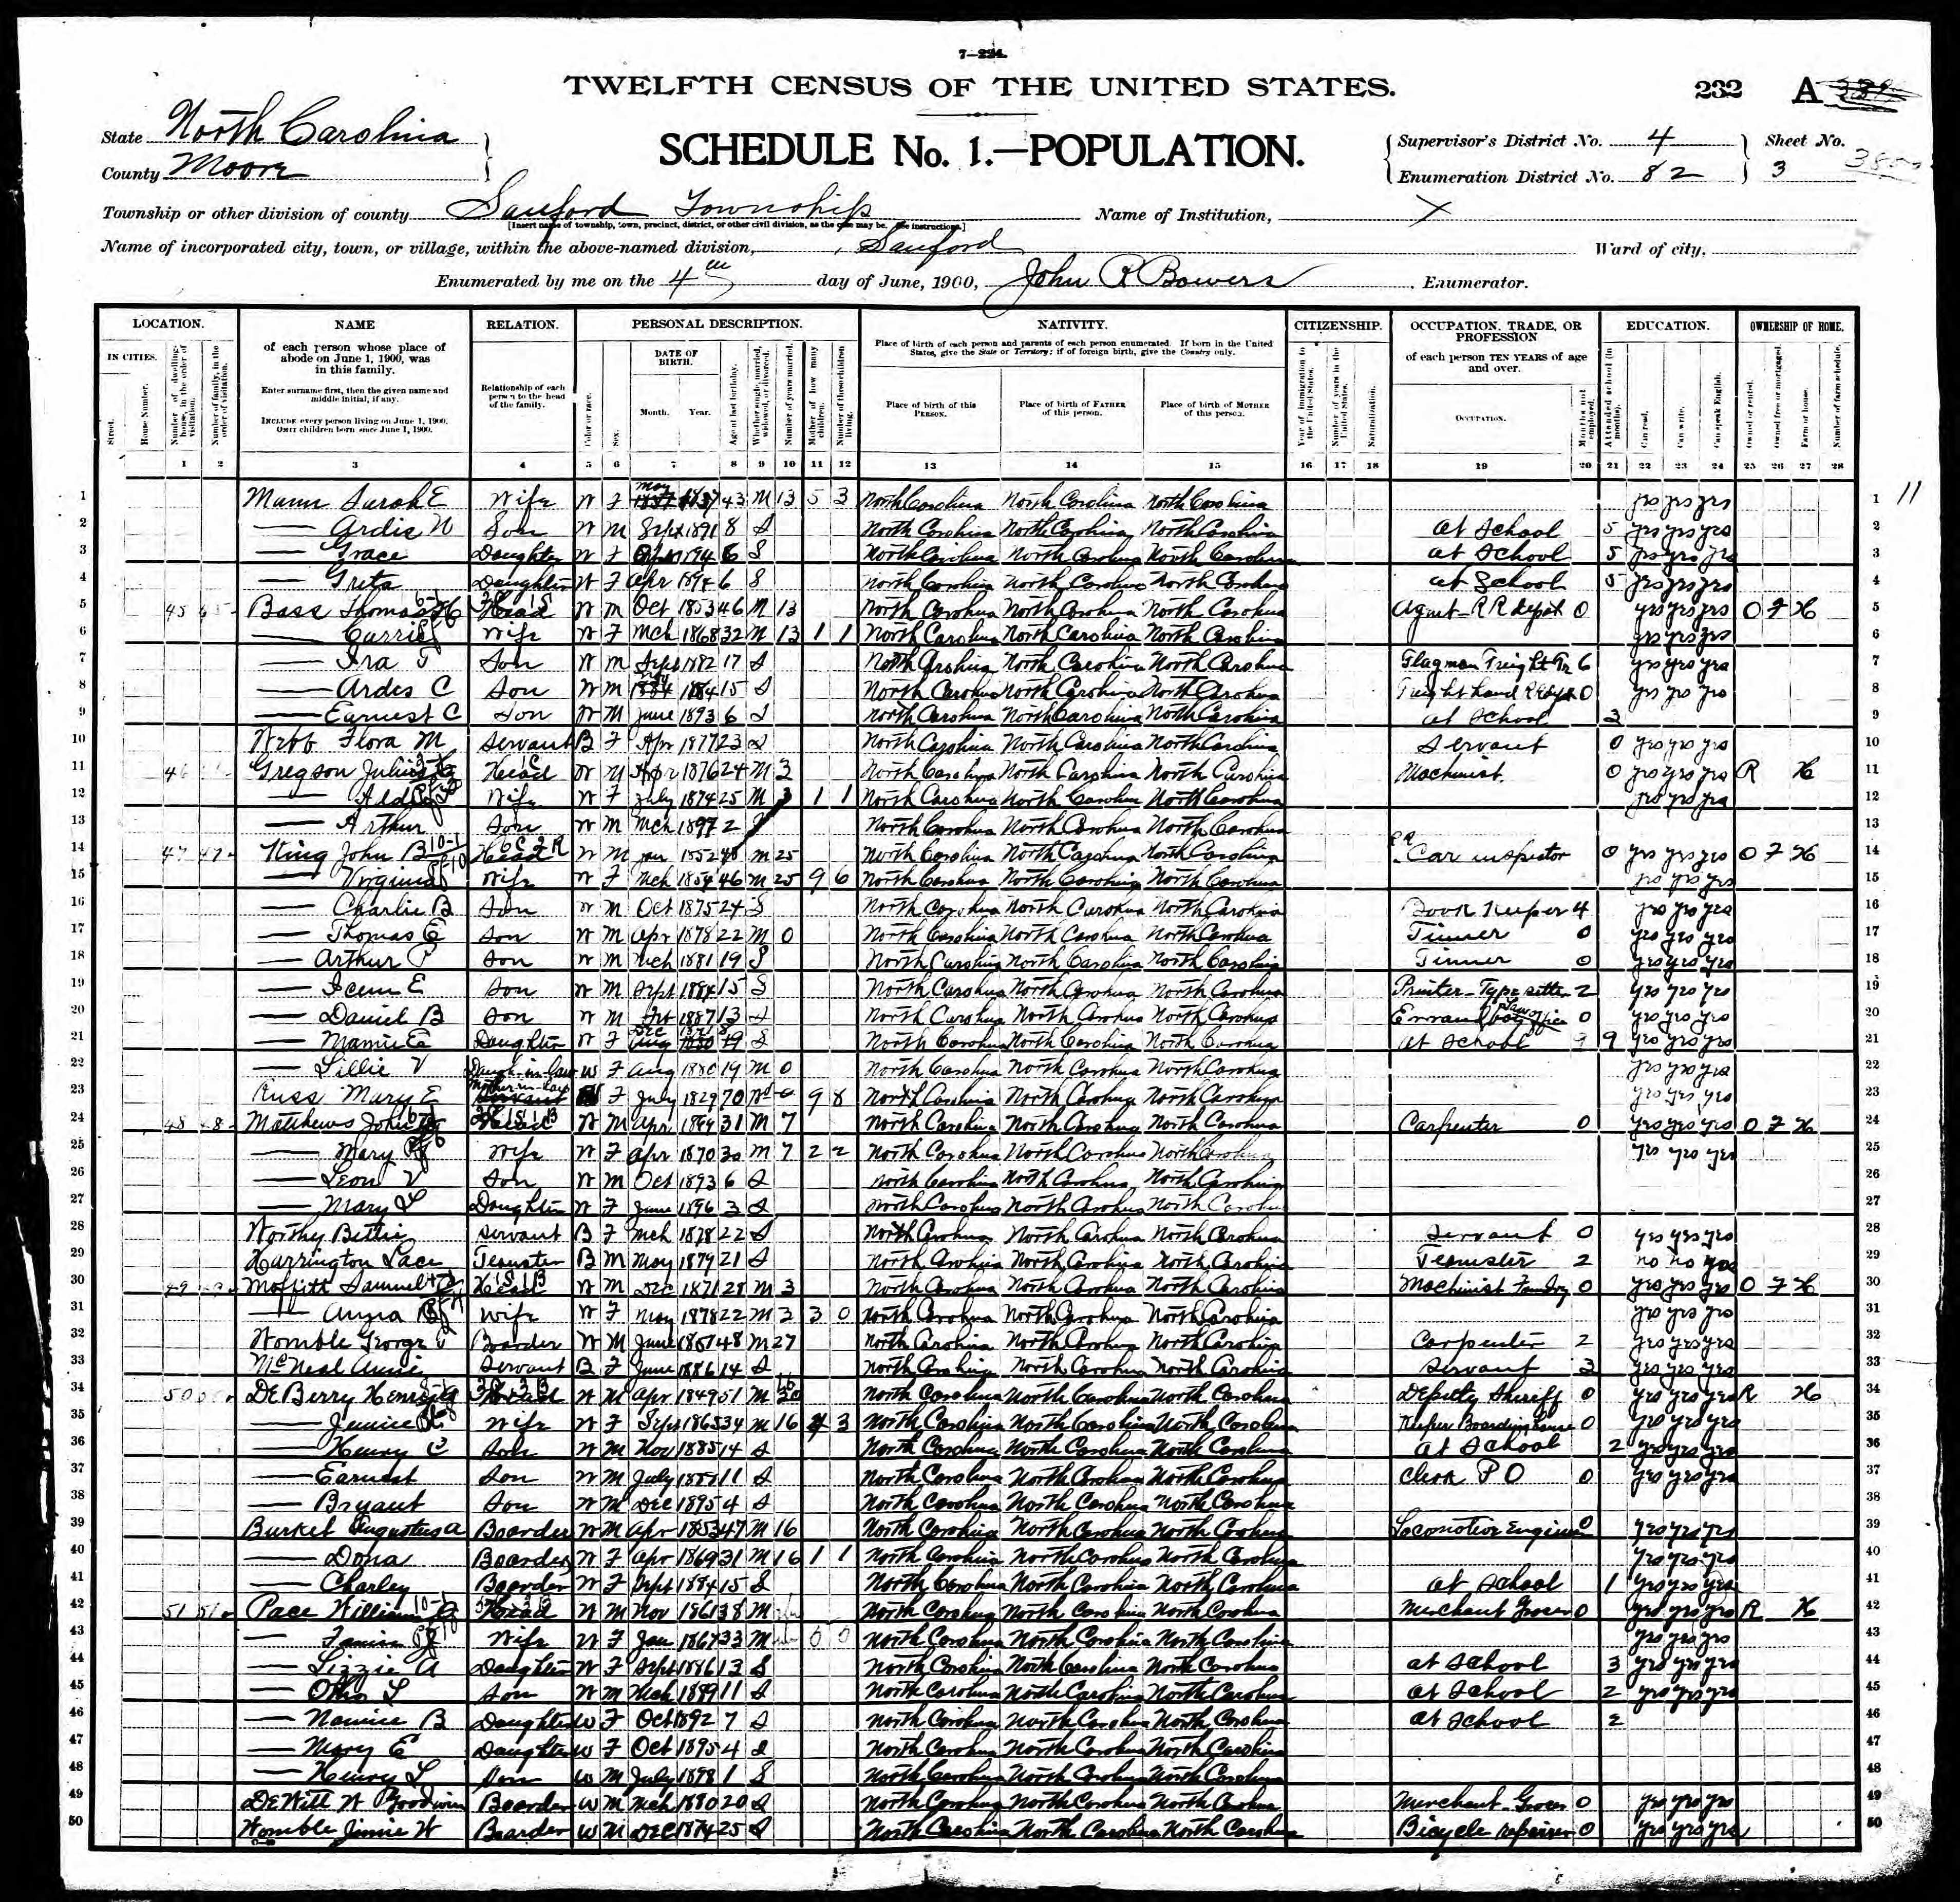 7—224.
TWELFTH CENSUS OF THE UNITED STATES.
232 A
State North Carolina
SCHEDULE No. 1.—POPULATION.
Supervisor's District No. 4 Sheet No.
County Moore
Enumeration District No. 82 3
Township or other division of county Sanford Township Name of Institution, X
[Insert name of township, town, precinct, district, or other civil division, as the case may be. See instructions.]
Name of incorporated city, town, or village, within the above-named division, Sanford Ward of city,
Enumerated by me on the 4th day of June, 1900, John R Bowers, Enumerator.
LOCATION. NAME RELATION. PERSONAL DESCRIPTION. NATIVITY. CITIZENSHIP. OCCUPATION, TRADE, OR PROFESSION EDUCATION. OWNERSHIP OF HOME.
IN CITIES. Street. House Number. Number of dwelling-house, in the order of visitation. Number of family, in the order of visitation.
of each person whose place of abode on June 1, 1900, was in this family.
Enter surname first, then the given name and middle initial, if any.
INCLUDE every person living on June 1, 1900. OMIT children born since June 1, 1900.
Relationship of each person to the head of the family.
Color or race. Sex. DATE OF BIRTH. Month. Year. Age at last birthday. Whether single, married, widowed, or divorced. Number of years married. Mother of how many children. Number of these children living.
Place of birth of each person and parents of each person enumerated. If born in the United States, give the State or Territory; if of foreign birth, give the Country only.
Place of birth of this PERSON. Place of birth of FATHER of this person. Place of birth of MOTHER of this person.
Year of immigration to the United States. Number of years in the United States. Naturalization.
of each person TEN YEARS of age and over. OCCUPATION. Months not employed.
Attended school (in months). Can read. Can write. Can speak English.
Owned or rented. Owned free or mortgaged. Farm or house. Number of farm schedule.
1 2 3 4 5 6 7 8 9 10 11 12 13 14 15 16 17 18 19 20 21 22 23 24 25 26 27 28
1 Mann Sarah E Wife W F May 43 M 13 5 3 North Carolina North Carolina North Carolina yes yes yes 1 11
2 — Ardis W Son W M Sept 1891 8 S North Carolina North Carolina North Carolina at School 5 yes yes yes 2
3 — Grace Daughter W F Apr 1894 6 S North Carolina North Carolina North Carolina at School 5 yes yes yes 3
4 — Greta Daughter W F Apr 1894 6 S North Carolina North Carolina North Carolina at School 5 yes yes yes 4
5 45 Bass Thomas Head W M Oct 1853 46 M 13 North Carolina North Carolina North Carolina Agent R R depot 0 yes yes yes O F H 5
6 — Carrie Wife W F Mch 1868 32 M 13 1 1 North Carolina North Carolina North Carolina yes yes yes 6
7 — Ira T Son W M Sept 1882 17 S North Carolina North Carolina North Carolina Flagman Freight Tn 6 yes yes yes 7
8 — Ardis C Son W M 1884 15 S North Carolina North Carolina North Carolina Freight hand 0 yes yes yes 8
9 — Earnest C Son W M June 1893 6 S North Carolina North Carolina North Carolina at School 3 9
10 Webb Flora M Servant B F Apr 1877 23 S North Carolina North Carolina North Carolina Servant 0 yes yes yes 10
11 46 Gregson Julius Head W M Apr 1876 24 M 3 North Carolina North Carolina North Carolina Machinist 0 yes yes yes R H 11
12 — Wife W F July 1874 25 M 3 1 1 North Carolina North Carolina North Carolina yes yes yes 12
13 — Arthur Son W M Mch 1897 2 North Carolina North Carolina North Carolina 13
14 47 47 King John B Head W M Jan 1852 48 M 25 North Carolina North Carolina North Carolina RR Car inspector 0 yes yes yes O F H 14
15 — Virginia Wife W F Mch 1854 46 M 25 9 6 North Carolina North Carolina North Carolina yes yes yes 15
16 — Charlie B Son W M Oct 1875 24 S North Carolina North Carolina North Carolina Book Keeper 4 yes yes yes 16
17 — Thomas E Son W M Apr 1878 22 M 0 North Carolina North Carolina North Carolina Tinner 0 yes yes yes 17
18 — Arthur P Son W M Mch 1881 19 S North Carolina North Carolina North Carolina Tinner 0 yes yes yes 18
19 — E Son W M Sept 1884 15 S North Carolina North Carolina North Carolina Printer - Type setter 2 yes yes yes 19
20 — Daniel B Son W M 1887 13 S North Carolina North Carolina North Carolina Errand boy Law office 0 yes yes yes 20
21 — Mamie E Daughter W F Dec S North Carolina North Carolina North Carolina at School 9 yes yes yes 21
22 — Lillie V Daugh-in-law W F Aug 1880 19 M 0 North Carolina North Carolina North Carolina yes yes yes 22
23 Russ Mary E Mother-in-law F July 1829 70 Wd 9 8 North Carolina North Carolina North Carolina yes yes yes 23
24 48 48 Matthews John Head W M Apr 31 M 7 North Carolina North Carolina North Carolina Carpenter 0 yes yes yes O F H 24
25 — Mary Wife W F Apr 1870 30 M 7 2 2 North Carolina North Carolina North Carolina yes yes yes 25
26 — Leon V Son W M Oct 1893 6 S North Carolina North Carolina North Carolina 26
27 — Mary L Daughter W F June 1896 3 S North Carolina North Carolina North Carolina 27
28 Worthy Bettie Servant B F Mch 1878 22 S North Carolina North Carolina North Carolina Servant 0 yes yes yes 28
29 Harrington Lace Teamster B M May 1879 21 S North Carolina North Carolina North Carolina Teamster 2 no no yes 29
30 49 Moffitt Samuel Head W M Dec 1871 28 M 3 North Carolina North Carolina North Carolina Machinist Foundry 0 yes yes yes O F H 30
31 — Anna Wife W F May 1878 22 M 3 3 0 North Carolina North Carolina North Carolina yes yes yes 31
32 Womble George P Boarder W M June 48 M 27 North Carolina North Carolina North Carolina Carpenter 2 yes yes yes 32
33 McNeal Annie Servant B F June 1886 14 S North Carolina North Carolina North Carolina Servant 3 yes yes yes 33
34 50 DeBerry Henry A Head W M Apr 1849 51 M 16 North Carolina North Carolina North Carolina Deputy Sheriff 0 yes yes yes R H 34
35 — Jennie Wife W F Sept 1865 34 M 16 3 North Carolina North Carolina North Carolina Keeper Boarding house 0 yes yes yes 35
36 — Henry C Son W M Nov 1885 14 S North Carolina North Carolina North Carolina at School 2 yes yes yes 36
37 — Earnest Son W M July 11 S North Carolina North Carolina North Carolina Clerk P O 0 yes yes yes 37
38 — Bryant Son W M Dec 1895 4 S North Carolina North Carolina North Carolina 38
39 Burket Augustus A Boarder W M Apr 1853 47 M 16 North Carolina North Carolina North Carolina Locomotive Engineer 0 yes yes yes 39
40 — Dona Boarder W F Apr 1869 31 M 16 1 1 North Carolina North Carolina North Carolina yes yes yes 40
41 — Charley Boarder W F Sept 1884 15 S North Carolina North Carolina North Carolina at School 1 yes yes yes 41
42 51 51 Pace William G Head W M Nov 1861 38 M North Carolina North Carolina North Carolina Merchant Grocer 0 yes yes yes R H 42
43 — Wife W F Jan 1867 33 M North Carolina North Carolina North Carolina yes yes yes 43
44 — Lizzie A Daughter W F Sept 1886 13 S North Carolina North Carolina North Carolina at School 3 yes yes yes 44
45 — Otho L Son W M Mch 1889 11 S North Carolina North Carolina North Carolina at School 2 yes yes yes 45
46 — Nannie B Daughter W F Oct 1892 7 S North Carolina North Carolina North Carolina at School 2 46
47 — Mary E Daughter W F Oct 1895 4 S North Carolina North Carolina North Carolina 47
48 — Henry L Son W M July 1898 1 S North Carolina North Carolina North Carolina 48
49 DeWitt W Goodwin Boarder W M Mch 1880 20 S North Carolina North Carolina North Carolina Merchant - Grocer 0 yes yes yes 49
50 Womble Jimie W Boarder W M Dec 1874 25 S North Carolina North Carolina North Carolina Bicycle repairer 0 yes yes yes 50